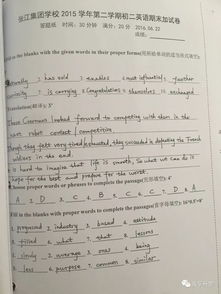 张江集团学校 2015 学年第二学期初二英语期末加试卷
答题纸 时间：30 分钟 满分：20 分 2016.06.22
成绩：
Fill in the blanks with the given words in their proper forms(用所给单词的适当形式填空):
1. naturally 2. has sold 3. enables 4. most influential 5. further
6. curiosity 7. is carrying 8. Congratulations 9. themselves 10. unchanged
Translation(翻译): 3'
Those Germans looked forward to competing with them in the
next robot contest / competition.
Though they felt very tired / exhausted, they succeeded in defeating the French
soldiers in the end.
It is hard to imagine that life is smooth. So what we can do is
hope for the best and prepare for the worst.
Choose proper words or phrases to complete the passage(完形填空): 4'
A 2. D 3. C 4. B 5. C 6. C 7. D 8. A
Fill in the blanks with proper words to complete the passage(首字母填空)
1. proposed 2. industry 3. based 4. attitude
5. filled 6. what 7. that 8. lessons
9. slowly 2. average 3. oral 4. being
5. less 6. purpose 7. common 8. similar